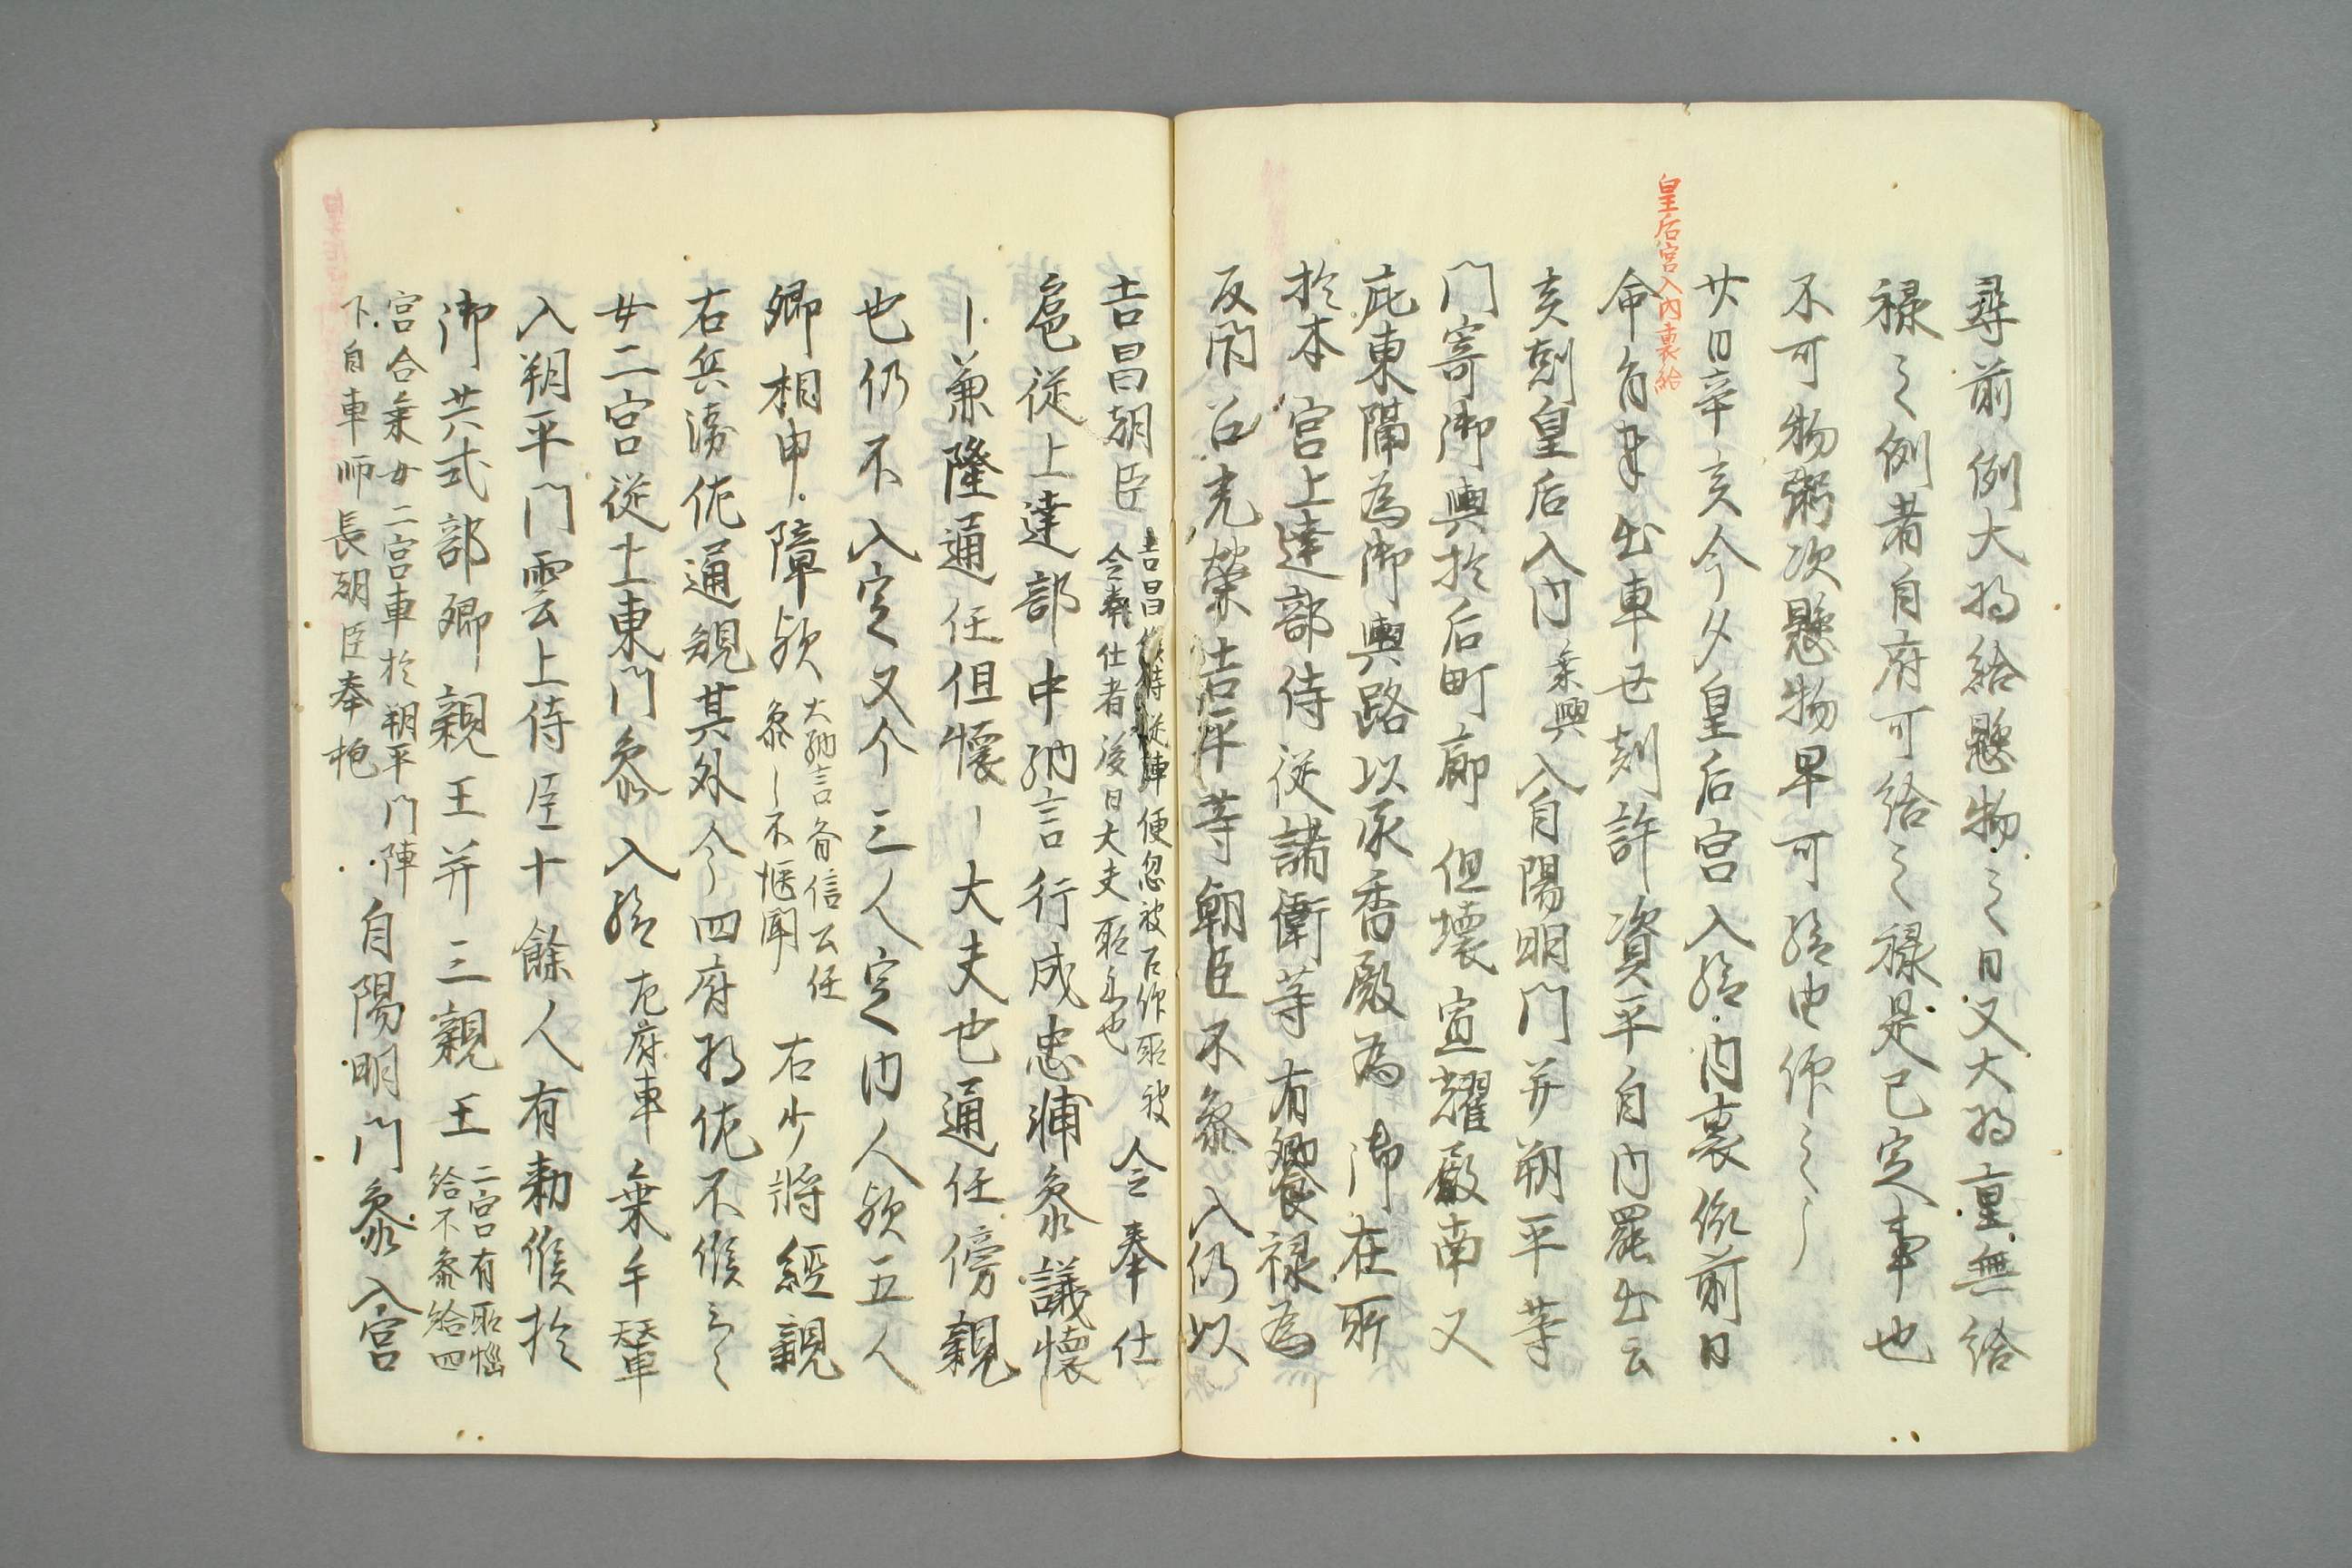 尋前例大将給懸物之日又大将重無給
禄之例者自府可給之禄是已定事也
不可物粥次懸物早可給由仰之
皇后宮入内裏給
廿日辛亥今夕皇后宮入給内裏依前日
命有 出車 刻許資平自内罷出云
亥刻皇后入内
乗輿
入自陽明門并朔平等
門寄御輿於后町廊但壊宣耀殿南又
庇東隔為御輿路以承香殿為御在所
於本宮上達部侍従諸衛等有饗禄為
反閇召光栄吉平等朝臣不参入仍以
吉昌朝臣
吉昌 侍従陣便忽被召仰所被
令奉仕者後日大夫所示也
令奉仕
扈従上達部中納言行成忠輔参議懐
〻兼隆通任但懐〻大夫也通任傍親
也仍不入定又今三人定内人欤五人
卿相申障欤
大納言斉信云任
参〻不慥聞
右少将経親
右兵衛佐通観其外今四府将佐不候云々
女二宮従土東門参入給
左府車
乗手輦
入朔平門雲上侍臣十餘人有勅候於
御共式部卿親王并三親王
二宮有所悩
給不参給四
宮合乗女二宮車於朔平門陣
下自車師長朝臣奉抱
自陽明門参入宮